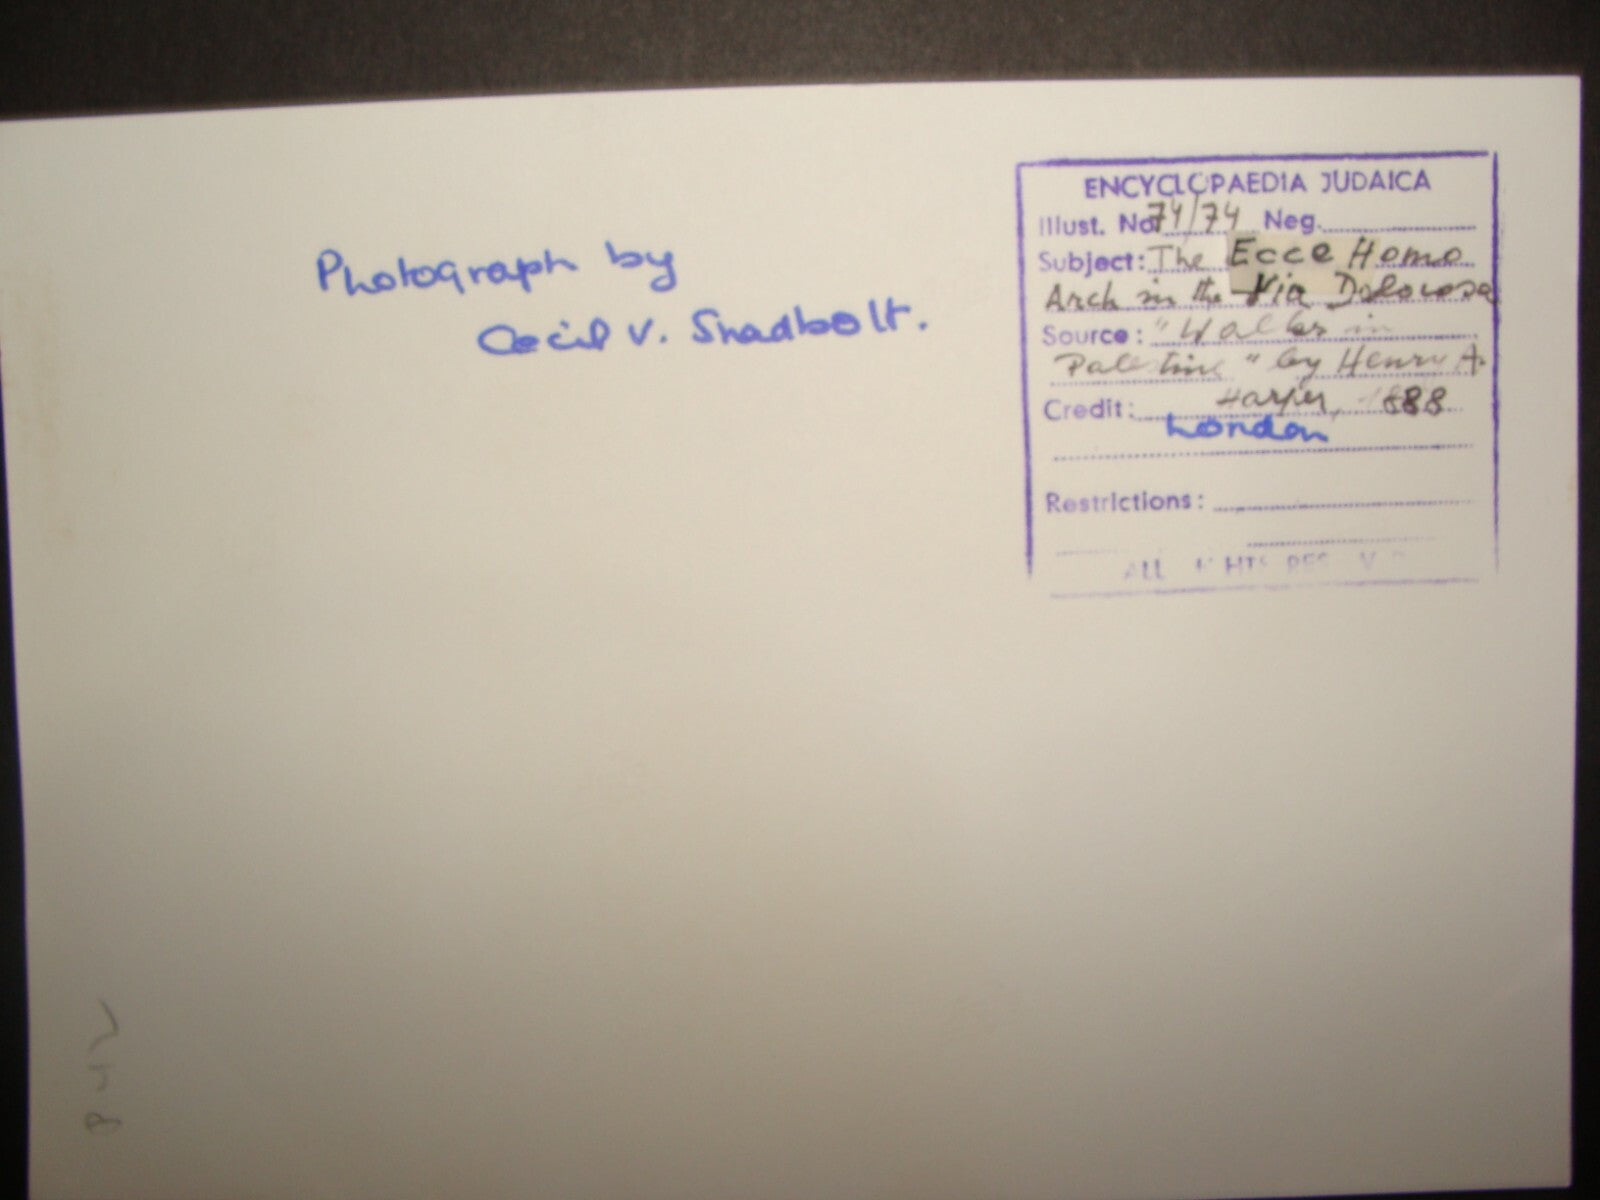 Photograph by
Cecil V. Shadbolt.
ENCYCLOPAEDIA JUDAICA
Illust. No 74/74 Neg.
Subject: The Ecce Homo
Arch in the Via Dolorosa
Source: "Walks in
Palestine" by Henry A.
Harper, 1888
Credit:
London
Restrictions:
ALL RIGHTS RESERVED